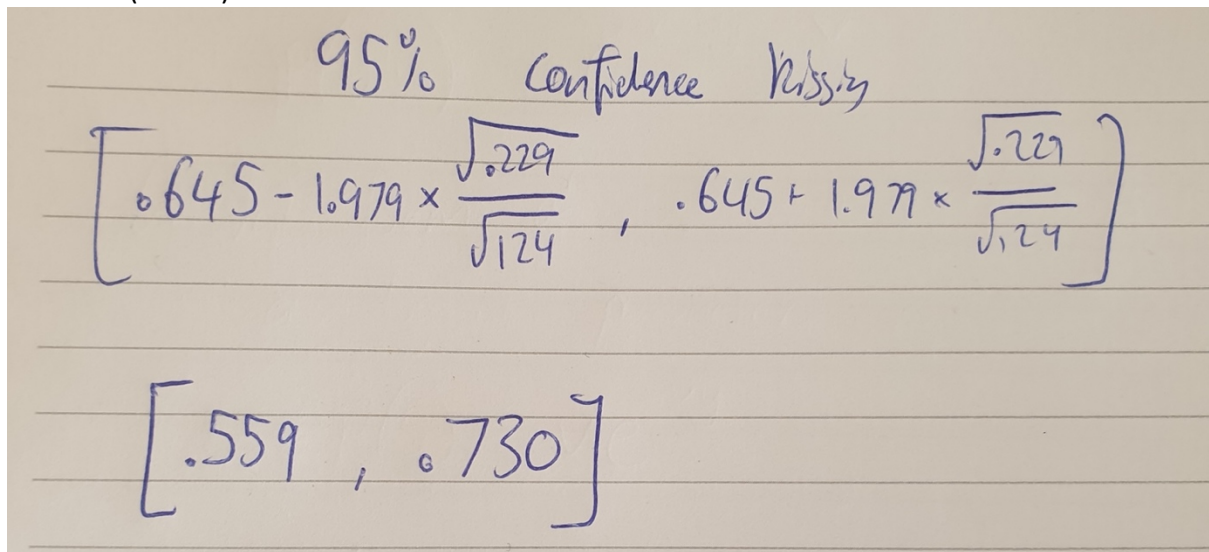 95% Confidence Kissing
[.645 - 1.979 × √.229/√124 , .645 + 1.979 × √.229/√124]
[.559 , .730]